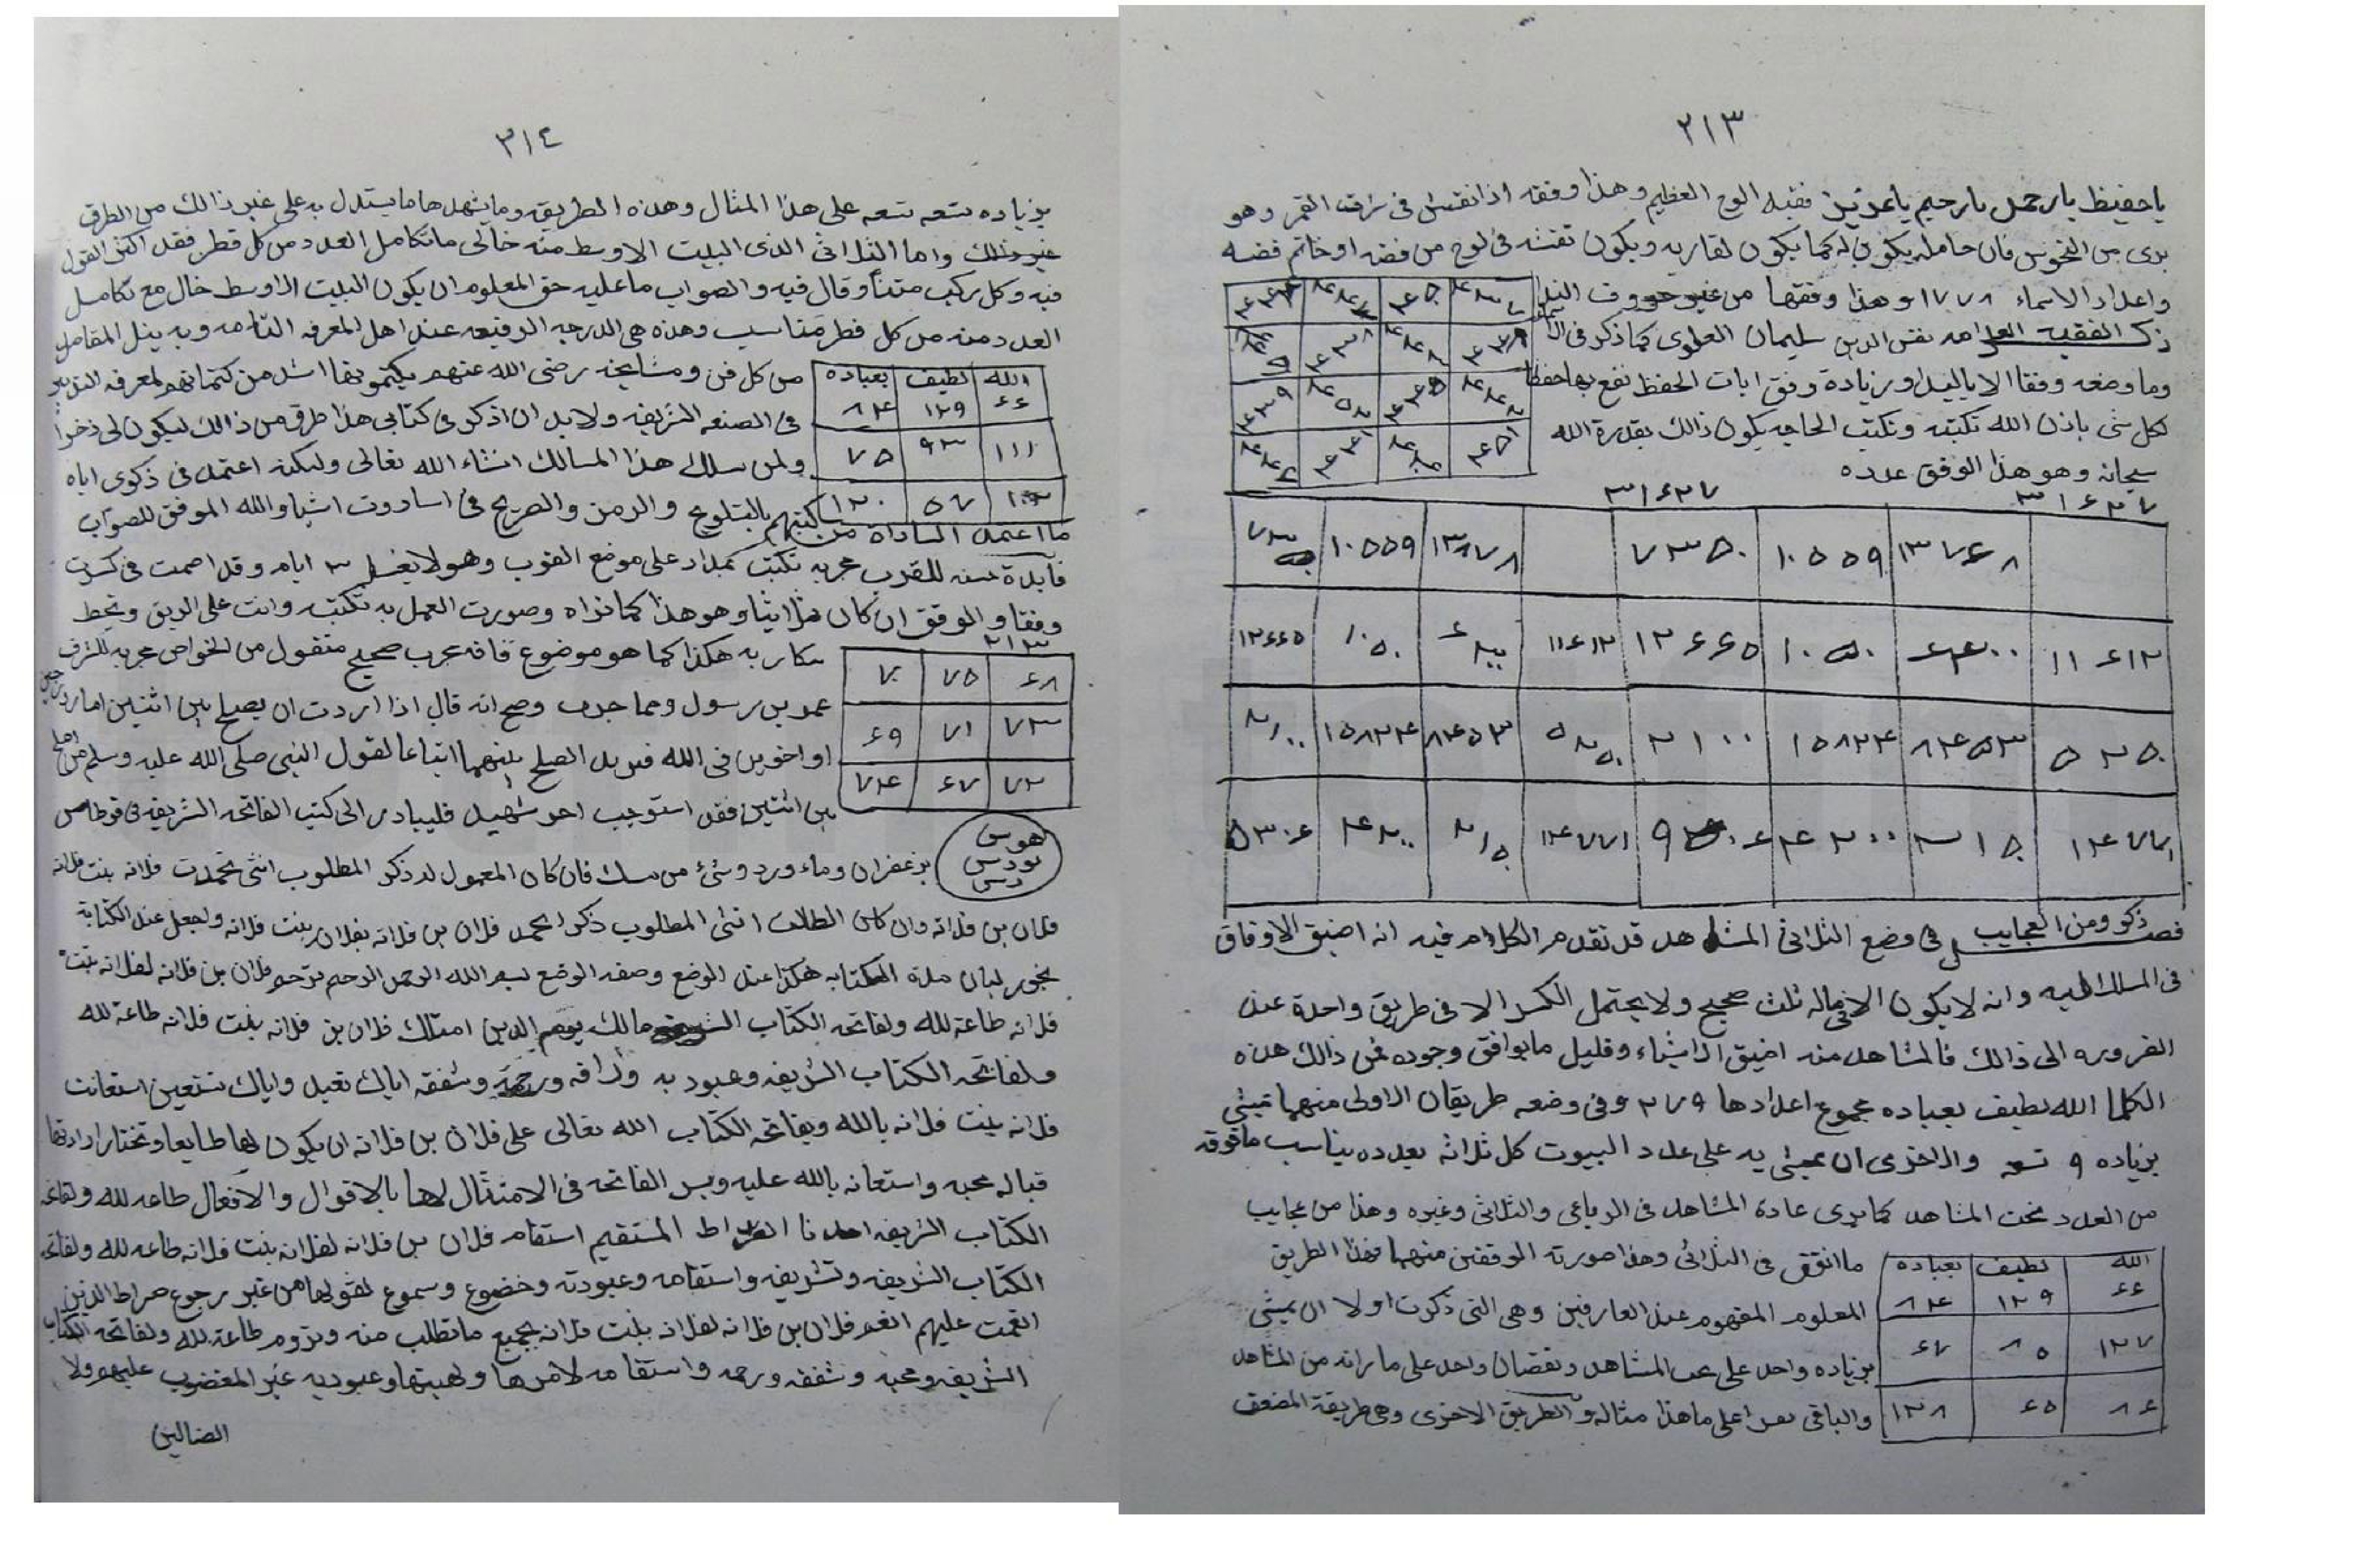 ٢١٣
ياحفيظ يارحمن يارحيم ياعزيز فقيه الوح العظيم وهذا وفقه اذا نقش في شرف القمر وهو
برى من النحوس فان حامله يكون له كما يكون لقاريه ويكون نقشه في لوح من فضه او خاتم فضه
واعداد الاسماء ١٧٧٨ وهذا وفقها من غير حروف الندا
ذكر الفقيه العلامه نفس الدين سليمان العلوى كما ذكر في
وما وضعه وفقا الا يا ليبدا وزيادة وفق ايات الحفظ نفع بها حفظا
لكل شى باذن الله تكتبه وتكتب الحاجه يكون ذالك بقدرة الله
سبحانه وهو هذا الوفق عدده
٣١٤٢٧ ٣١٤٢٧
١٣٧٤٨ ١٠٥٥٩ ٧٣٥٠ ١٣٨٧٨ ١٠٥٥٩
١١٤١٢ ١٢٤٤٥ ١١٤١٢ ١٠٥٠ ١٢٤٤٥
٥٢٥٠ ٨٤٥٣ ١٥٨٢٤ ٢١٠٠ ٥٢٥٠ ٨٤٥٣ ١٥٨٢٤ ٢١٠٠
١٤٧٧١ ٢١٥ ٤٢٠٠ ١٤٧٧١ ٢١٥ ٤٢٠٠ ٥٣٠٤
فصل ذكر ومن العجايب في وضع الثلاثى المشاهد قد تقدم الكلام فيه انه اضيق الاوفاق
في المسلك اليه وانه لا يكون الا فيما له ثلث صحيح ولا يحتمل الكسر الا في طريق واحدة عند
الضروره الى ذالك فالمشاهد منه اضيق الاشياء وقليل ما يوافق وجوده فمن ذالك هذه
الكلما الله لطيف بعباده مجموع اعدادها ٢٧٩ وفي وضعه طريقان الاولى منهما تمشي
بزياده ٩ تسعه والاخرى ان يمشي به على عدد البيوت كل ثلاثه بعدده يناسب ما فوقه
من العدد تحت المشاهد كما يرى عادة المشاهد في الرباعى والثلاثى وغيره وهذا من عجايب
ما اتفق في الثلاثى وهذا صورته الوفقين منهما فهذا الطريق
المعلوم المفهوم عند العارفين وهى التى ذكرت اولا ان يمشي
بزياده واحد على المشاهد ونقصان واحد على ما زانه من المشاهد
والباقى على ما هذا مثاله والطريق الاخرى وهى طريقة المضعف
الله لطيف بعباده
٦٦ ١٢٩ ٨٤
١٢٧ ٨٥ ٦٧
٨٦ ٦٥ ١٢٨
٣١٤
بزياده تسعه تسعه على هذا المثال وهذه الطريقه وما يشهدها ما يستدل به على غير ذالك من الطرق
واما الثلاثى الذى البيت الاوسط منه خالى ما تكامل العدد من كل قطر فقد اكثر القول
فيه وكل ركب متنا وقال فيه والصواب ما عليه حق المعلوم ان يكون البيت الاوسط خال مع تكامل
العدد منه من كل قطر متناسب وهذه هى الدرجه الرفيعه عند اهل المعرفه التامه وبه ينل المقامل
من كل فن ومشايخه رضى الله عنهم يكتمونها اشد من كتمانهم لمعرفه التدبير
في الصنعه الشريفه ولابد ان اذكر في كتابى هذا طرق من ذالك ليكون لى ذخرا
ولمن سلك هذا المسالك انشاء الله تعالى ولكنه اعتمد في ذكرى اياه
ما اعتمد الساداة من كتبهم بالتلويح والرمز والصريح في اشيا والله الموفق للصواب
الله لطيف بعباده
٦٦ ١٢٩ ٨٤
١١١ ٩٣ ٧٥
١٠٢ ٥٧ ١٢٠
فايدة حسنه للقرب مجربه تكتب بمداد على موضع القوب وهو لا يغسل ٣ ايام
وفقا والموفق ان كان مثلثا وهو هذا كما تراه وصورت العمل به تكتبه وانت على الريق
٢١٣
٦٨ ٧٥ ٧٠
٧٣ ٧١ ٦٩
٧٢ ٦٧ ٧٤
هكذا كما هو موضوع فانه مجرب صحيح منقول من الخواص مجربه للشرف
عمر بن رسول ومما جرب وصح انه قال اذا اردت ان يصلح بين اثنين
او اخوين في الله فيريد الصلح بينهما اتباعا لقول النبى صلى الله عليه وسلم من اصلح
بين اثنين فقد استوجب اجر شهيد فليبادر الى كتب الفاتحه الشريفه في قرطاس
بزعفران وماء ورد وشئ من مسك فان كان المعمول له ذكر المطلوب انثى تحمدت فلانه بنت فلانه
فلان بن فلانه وان كان الطالب انثى المطلوب ذكر الحمد فلان بن فلانه بفلان بنت فلانه واجعل عند الكتابة
بخور لبان مدة الكتابه هكذا عند الوضع وصفه الوضع بسم الله الرحمن الرحيم ترحم فلان بن فلانه لفلانه بنت
فلانه طاعة لله ولفاتحه الكتاب الشريفه مالك يوم الدين امتلك فلان بن فلانه بنت فلانه طاعة لله
ولفاتحه الكتاب الشريفه وعبوديه ورافه ورحمة وشفقه اياك نعبد واياك نستعين استعانت
فلانه بنت فلانه بالله وبفاتحه الكتاب الله تعالى على فلان بن فلانه ان يكون لها طايعا وتختار ارادتها
قباله محبه واستعانه بالله عليه وبسر الفاتحه في الامتثال لها بالاقوال والافعال طاعه لله ولفاتحه
الكتاب الشريفه اهدنا الصراط المستقيم استقام فلان بن فلانه لفلانه بنت فلانه طاعه لله ولفاتحه
الكتاب الشريفه وتشريفه واستقامه وعبودته وخضوع وسموع لقولها من غير رجوع صراط الذين
انعمت عليهم انعم فلان بن فلانه لفلانه بنت فلانه بجميع ما تطلب منه ويزوم طاعة لله ولفاتحه الكتاب
الشريفه ومحبه وشفقه ورحمه واستقامه لامرها ولهيبتها وعبوديه غير المغضوب عليهم ولا
الضالين